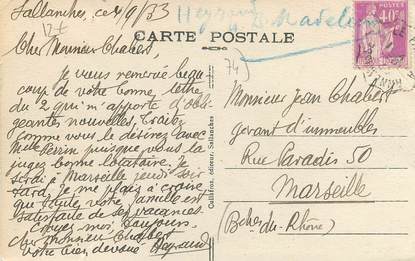 Sallanches, ce 4/9/33
CARTE POSTALE
Cher Monsieur Chabert,
Je vous remercie beau
coup de votre bonne lettre
du 2 qui m'apporte d'obli
geantes nouvelles. Traitez
comme vous le désirez avec
Mme Perrin puisque vous la
jugez bonne locataire. Je
serai à Marseille jeudi soir
tard. Je me plais à croire
que toute votre famille est
satisfaite de ses vacances.
Croyez moi toujours
cher Monsieur Chabert
votre bien dévoué
74)
40c
Monsieur Jean Chabert
gérant d'immeubles
Rue Paradis 50
Marseille
(Bches du-Rhône)
éditeur, Sallanches